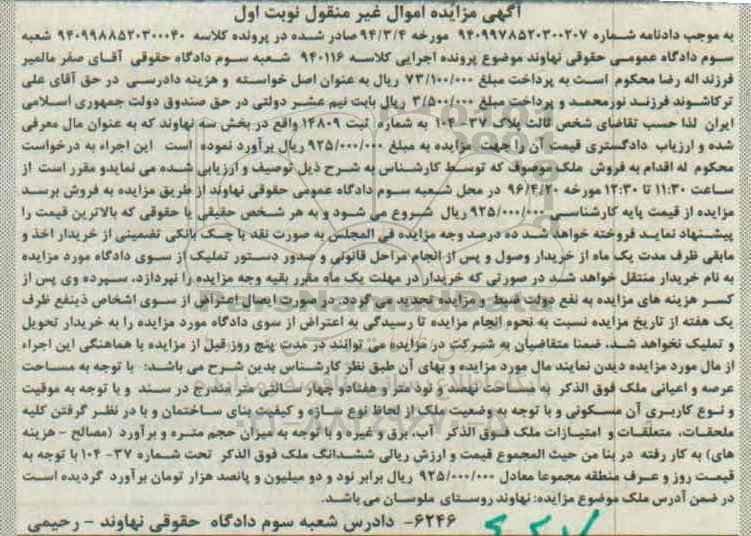 آگهی مزایده اموال غیر منقول نوبت اول
به موجب دادنامه شماره ۹۴۰۹۹۷۸۵۲۰۳۰۰۲۰۷ مورخه ۹۴/۳/۴ صادر شده در پرونده کلاسه ۹۴۰۹۹۸۸۵۲۰۳۰۰۰۴۰ شعبه
سوم دادگاه عمومی حقوقی نهاوند موضوع پرونده اجرایی کلاسه ۹۴۰۱۱۶ شعبه سوم دادگاه حقوقی آقای صفر مالمیر
فرزند اله رضا محکوم است به پرداخت مبلغ ۷۳/۱۰۰/۰۰۰ ریال به عنوان اصل خواسته و هزینه دادرسی در حق آقای علی
ترکاشوند فرزند نورمحمد و پرداخت مبلغ ۳/۵۰۰/۰۰۰ ریال بابت نیم عشر دولتی در حق صندوق دولت جمهوری اسلامی
ایران لذا حسب تقاضای شخص ثالث پلاک ۳۷-۱۰۴ به شماره ثبت ۱۴۸۰۹ واقع در بخش سه نهاوند که به عنوان مال معرفی
شده و ارزیاب دادگستری قیمت آن را جهت مزایده به مبلغ ۹۲۵/۰۰۰/۰۰۰ ریال برآورد نموده است این اجراء به درخواست
محکوم له اقدام به فروش ملک موصوف که توسط کارشناس به شرح ذیل توصیف و ارزیابی شده می نمایدو مقرر است از
ساعت ۱۱:۳۰ تا ۱۲:۳۰ مورخه ۹۶/۴/۲۰ در محل شعبه سوم دادگاه عمومی حقوقی نهاوند از طریق مزایده به فروش برسد
مزایده از قیمت پایه کارشناسی ۹۲۵/۰۰۰/۰۰۰ ریال شروع می شود و به هر شخص حقیقی یا حقوقی که بالاترین قیمت را
پیشنهاد نماید فروخته خواهد شد ده درصد وجه مزایده فی المجلس به صورت نقد یا چک بانکی تضمینی از خریدار اخذ و
مابقی ظرف مدت یک ماه از خریدار وصول و پس از انجام مراحل قانونی و صدور دستور تملیک از سوی دادگاه مورد مزایده
به نام خریدار منتقل خواهد شد در صورتی که خریدار در مهلت یک ماه مقرر بقیه وجه مزایده را نپردازد، سپرده وی پس از
کسر هزینه های مزایده به نفع دولت ضبط و مزایده تجدید می گردد. در صورت ایصال اعتراض از سوی اشخاص ذینفع ظرف
یک هفته از تاریخ مزایده نسبت به نحوه انجام مزایده تا رسیدگی به اعتراض از سوی دادگاه مورد مزایده را به خریدار تحویل
و تملیک نخواهد شد، ضمنا متقاضیان به شرکت در مزایده می توانند در مدت پنج روز قبل از مزایده با هماهنگی این اجراء
از مال مورد مزایده دیدن نمایند مال مورد مزایده و بهای آن طبق نظر کارشناس بدین شرح می باشد: با توجه به مساحت
عرصه و اعیانی ملک فوق الذکر به مساحت نهصد و نود متر و هفتادو چهار سانتی متر مندرج در سند و با توجه به موقیت
و نوع کاربری آن مسکونی و با توجه به وضعیت ملک از لحاظ نوع سازه و کیفیت بنای ساختمان و با در نظر گرفتن کلیه
ملحقات، متعلقات و امتیازات ملک فوق الذکر آب، برق و غیره و با توجه به میزان حجم متره و برآورد (مصالح - هزینه
های) به کار رفته در بنا من حیث المجموع قیمت و ارزش ریالی ششدانگ ملک فوق الذکر تحت شماره ۳۷- ۱۰۴ با توجه به
قیمت روز و عرف منطقه مجموعا معادل ۹۲۵/۰۰۰/۰۰۰ ریال برابر نود و دو میلیون و پانصد هزار تومان برآورد گردیده است
در ضمن آدرس ملک موضوع مزایده: نهاوند روستای ملوسان می باشد.
۶۲۴۶- دادرس شعبه سوم دادگاه حقوقی نهاوند - رحیمی